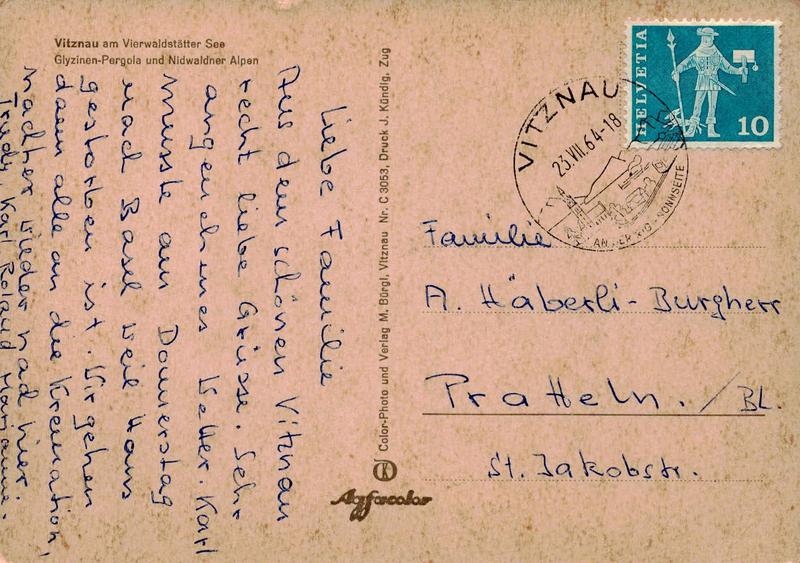 Vitznau am Vierwaldstätter See
Glyzinen-Pergola und Nidwaldner Alpen
Liebe Familie
Aus dem schönen Vitznau
recht liebe Grüsse. Sehr
angenehmes Wetter. Karl
musste am Donnerstag
nach Basel weil Hans
gestorben ist. Wir gehen
dann alle an die Kremation,
nachher wieder nach hier.
Trudy, Karl Roland Marianne.
Color-Photo und Verlag M. Bürgi, Vitznau Nr. C 3053, Druck J. Kündig, Zug
Agfacolor
HELVETIA
10
VITZNAU
23.VII.64-18
AN DER RIGI-SONNSEITE
Familie
A. Häberli-Burgherr
Pratteln. / BL.
St. Jakobstr.